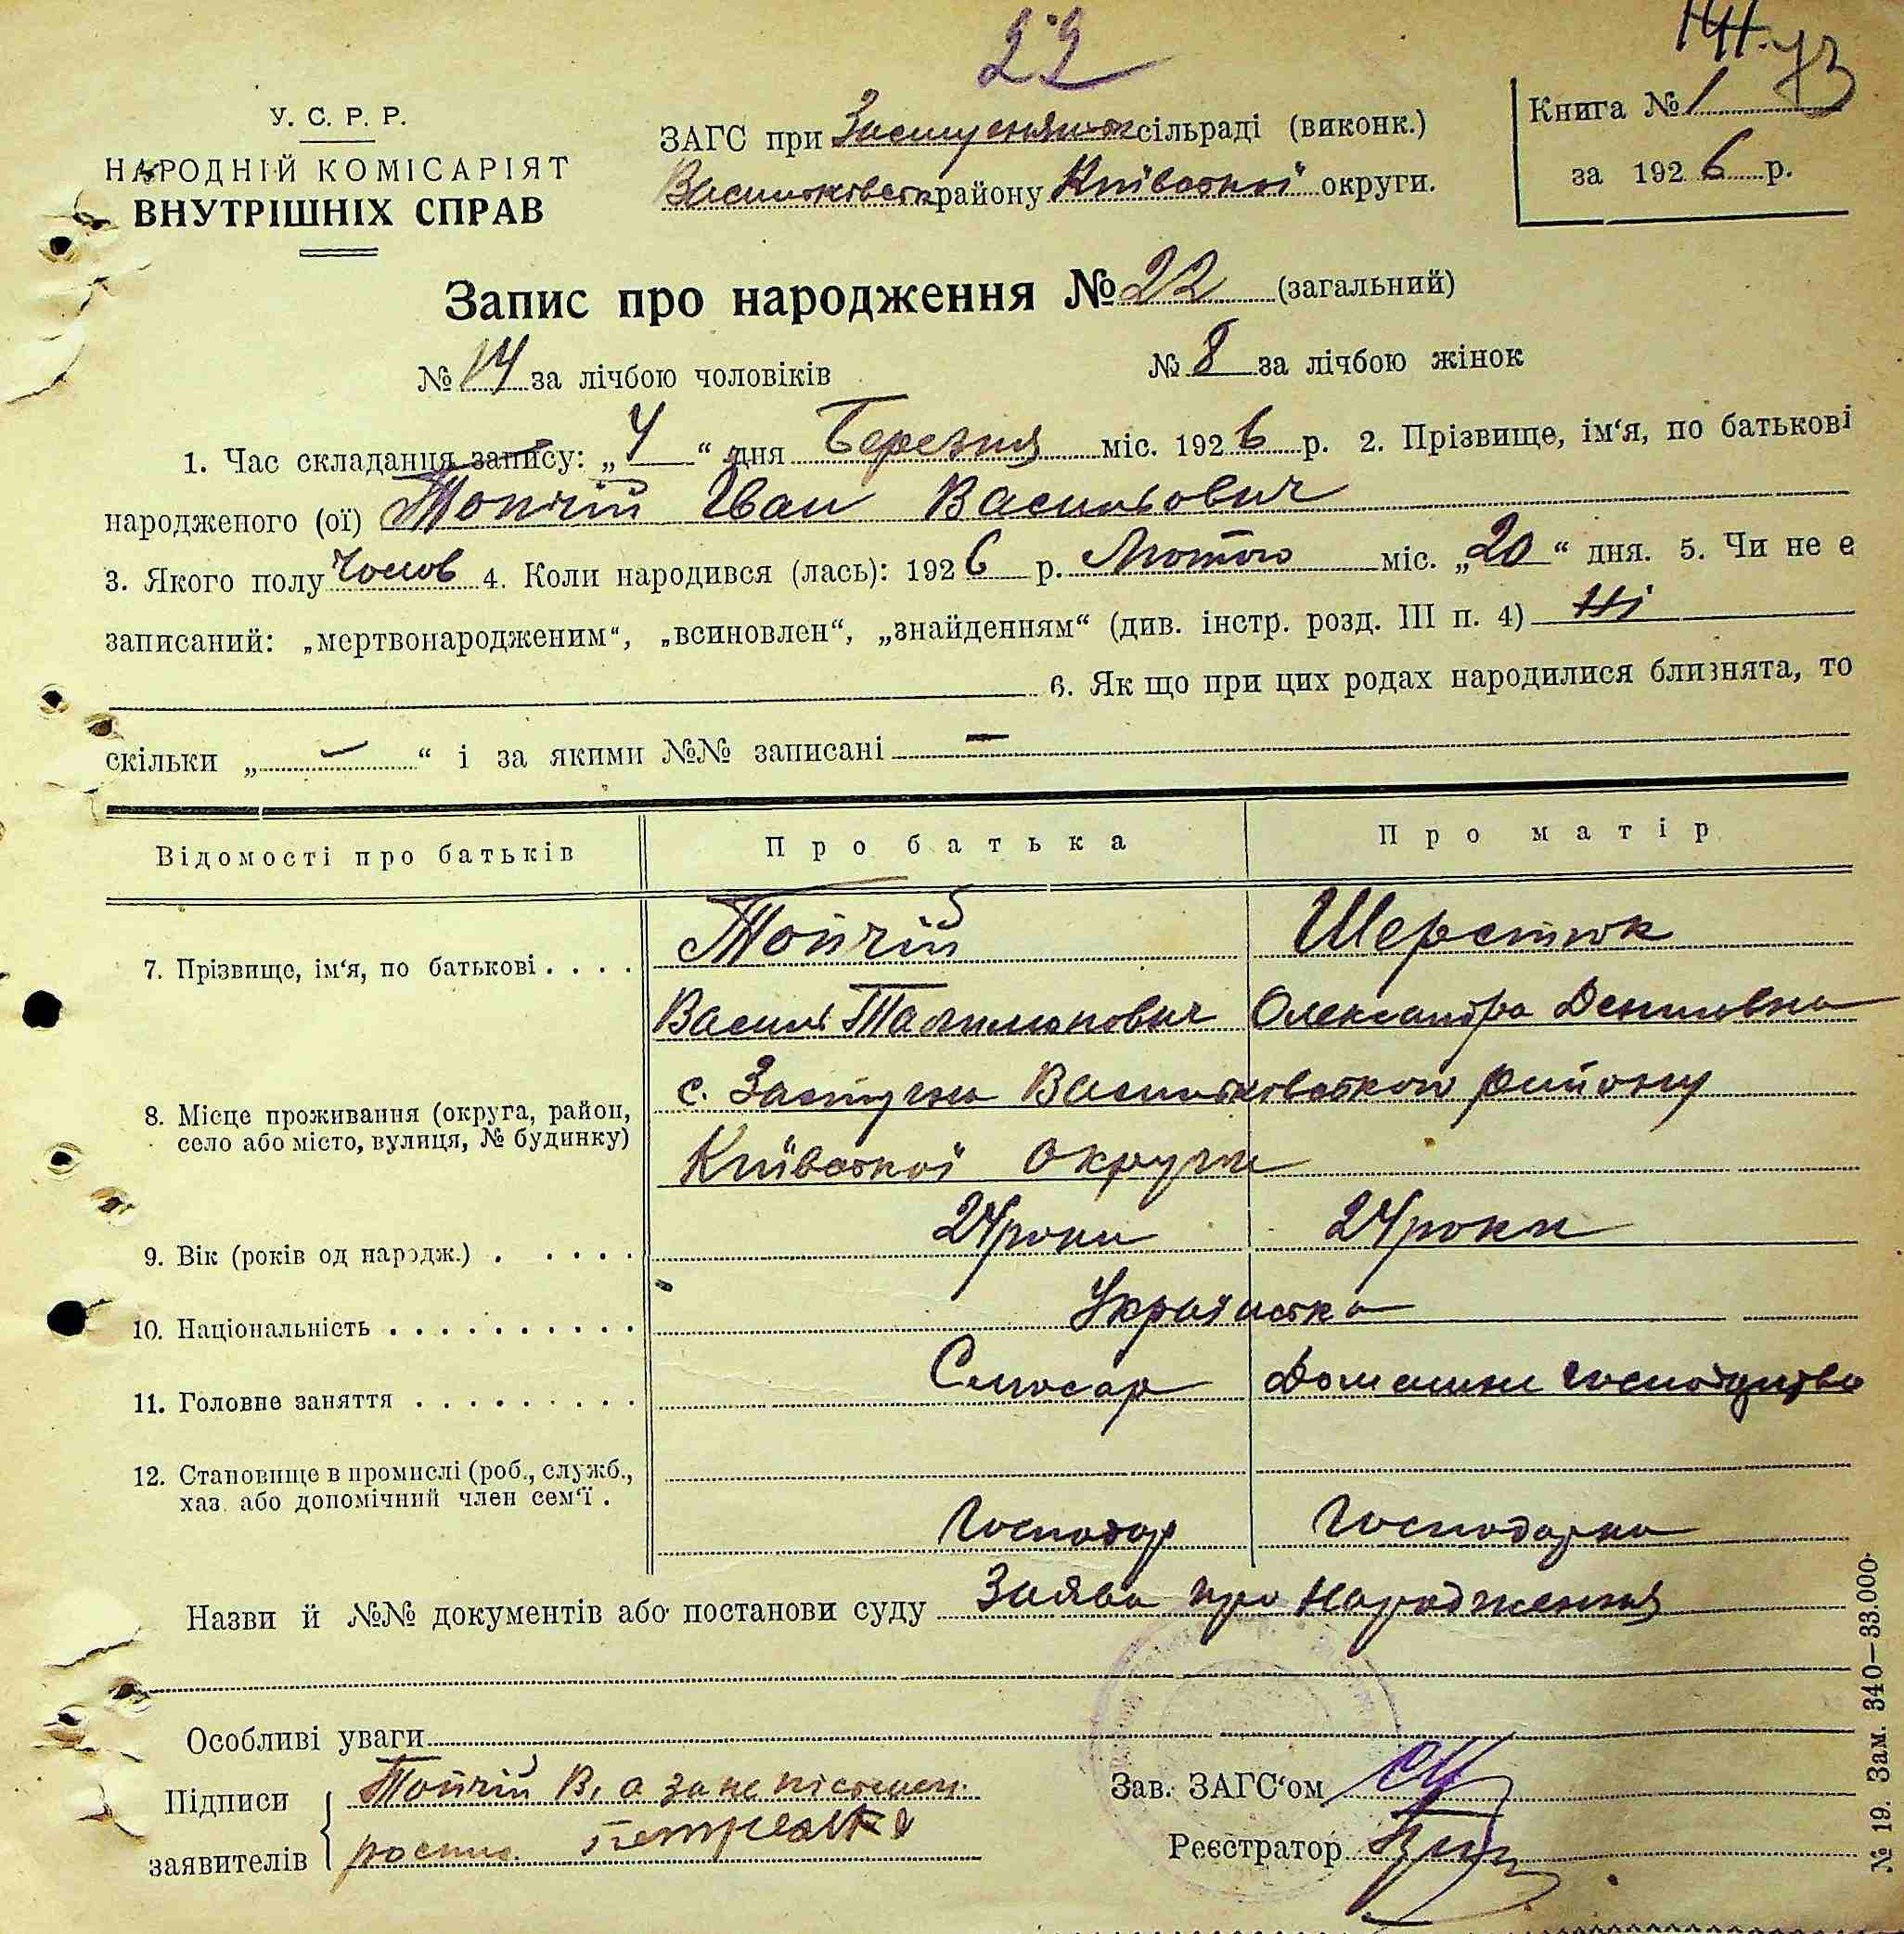 22
У. С. Р. Р.
НАРОДНІЙ КОМІСАРІЯТ
ВНУТРІШНІХ СПРАВ
ЗАГС при сільраді (виконк.)
району Київської округи.
Книга № 1
73
за 1926 р.
Запис про народження № 22 (загальний)
№ 14 за лічбою чоловіків
№ 8 за лічбою жінок
1. Час складання запису: „4“ дня Березня міс. 1926 р. 2. Прізвище, ім‘я, по батькові
народженого (ої) Топчій Іван Васильович
3. Якого полу Чолов 4. Коли народився (лась): 1926 р. Лютого міс. „20“ дня. 5. Чи не є
записаний: „мертвонародженим“, „всиновлен“, „знайденням“ (див. інстр. розд. III п. 4) Ні
6. Як що при цих родах народилися близнята, то
скільки „ — “ і за якими №№ записані —
Відомості про батьків
Про батька
Про матір
7. Прізвище, ім‘я, по батькові . . . .
Топчій
Шерстюк
Василь
Олександра
8. Місце проживання (округа, район,
село або місто, вулиця, № будинку)
с. Застугна Васильковського району
Київської округи
9. Вік (років од народж.) . . . . .
24 роки
24 роки
10. Національність . . . . . . . . . .
Українська
11. Головне заняття . . . . . . . . .
Слюсар
Домашне господарство
12. Становище в промислі (роб., служб.,
хаз. або допомічний член сем‘ї .
Господар
Господарка
Назви й №№ документів або постанови суду Заява про народження
Особливі уваги
Підписи
заявителів
Топчій В. а за не
Зав. ЗАГС‘ом
Реєстратор
№ 19. Зам. 340—33.000